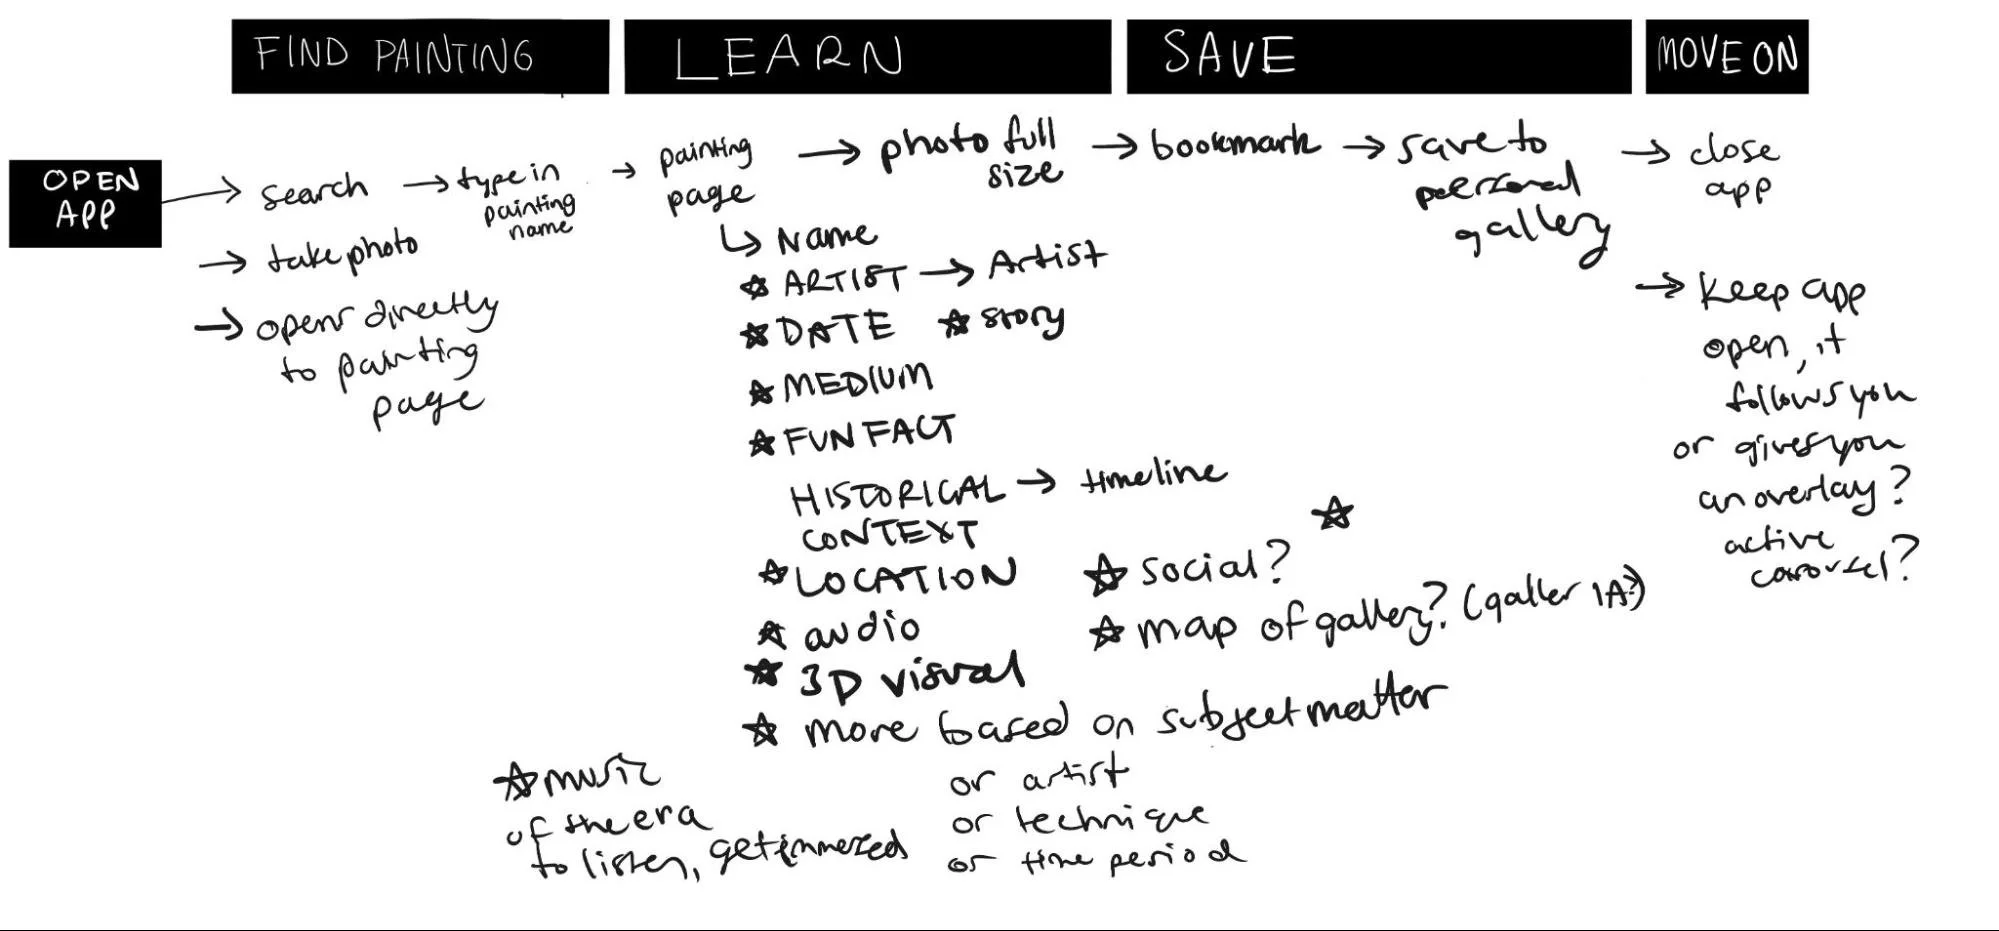 FIND PAINTING
LEARN
SAVE
MOVE ON
OPEN
APP
→ search
→ type in
painting
name
→ take photo
→ opens directly
to painting
page
→ painting
page
→ photo full
size
↳ Name
☆ ARTIST → Artist
☆ DATE
☆ story
☆ MEDIUM
☆ FUN FACT
HISTORICAL → timeline
CONTEXT
☆ LOCATION
☆ audio
☆ 3D visual
☆ more based on subject matter
or artist
or technique
or time period
☆ music
of the era
to listen, get immersed
☆
☆ social?
☆ map of gallery? (galler 1A?)
→ bookmark
→ save to
personal
gallery
→ close
app
→ keep app
open, it
follows you
or gives you
an overlay?
active
carousel?